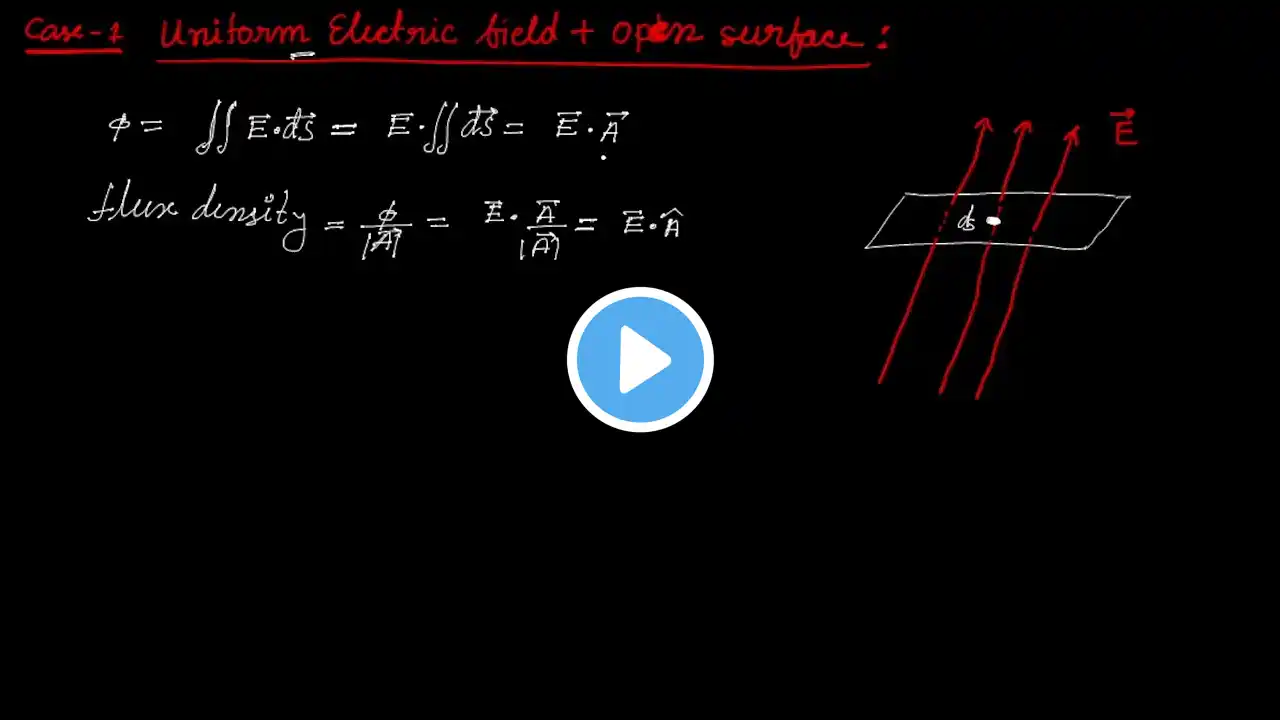 Case-1 Uniform Electric field + open surface:
φ = ∬ E⃗·ds⃗ = E⃗·∬ds⃗ = E⃗·A⃗
flux density = φ/|A⃗| = E⃗·A⃗/|A⃗| = E⃗·Â
E⃗
ds